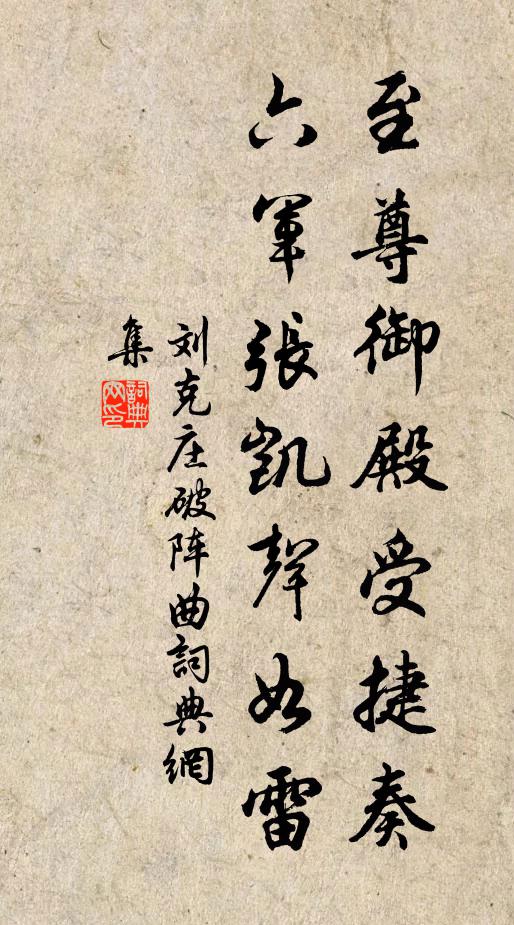 至尊御殿受捷奏
六軍張凱聲如雷
刘克庄破阵曲詞典網
集
詞典
网印